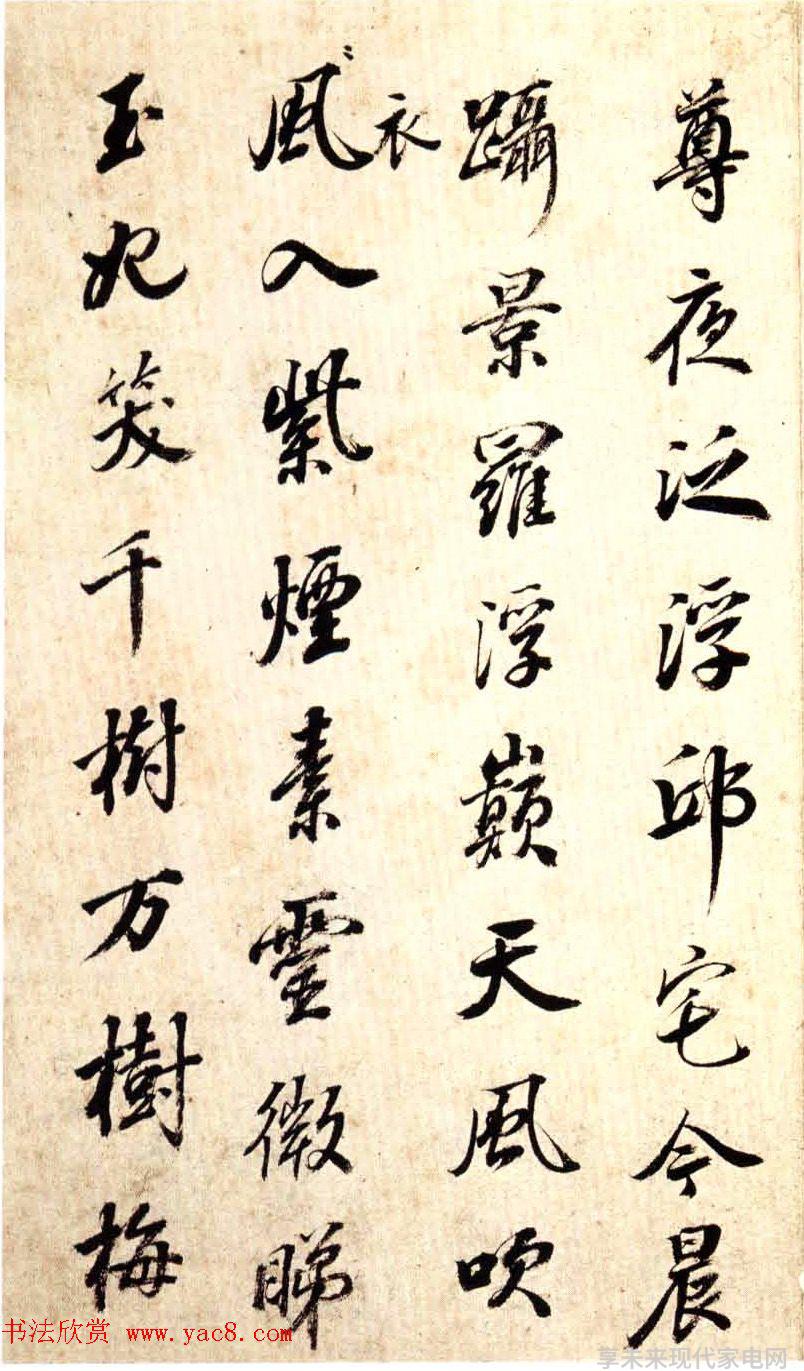 尊夜泛浮邱宅今晨
躡景羅浮巔天風吹
衣
風入紫煙素靈微睇
玉妃笑千樹万樹梅
书法欣赏 www.yac8.com
享未来现代家电网